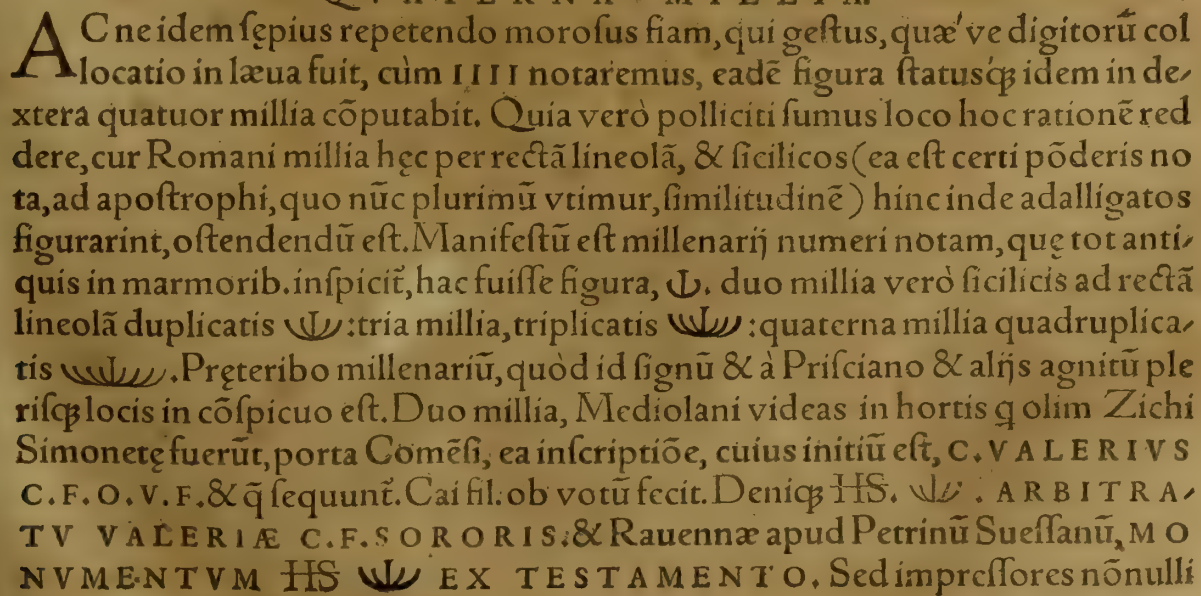 AC ne idem ſępius repetendo moroſus fiam, qui geſtus, quæ've digitorũ col
locatio in læua fuit, cùm IIII notaremus, eadẽ figura ſtatusq́ꝫ idem in de-
xtera quatuor millia cõputabit. Quia verò polliciti ſumus loco hoc rationẽ red
dere, cur Romani millia hęc per rectã lineolã, & ſicilicos (ea eſt certi põderis no
ta, ad apoſtrophi, quo nũc plurimũ vtimur, ſimilitudinẽ) hinc inde adalligatos
figurarint, oſtendendũ eſt. Manifeſtũ eſt millenarij numeri notam, quę tot anti-
quis in marmorib. inſpicit̃, hac fuiſſe figura, . duo millia verò ſicilicis ad rectã
lineolã duplicatis : tria millia, triplicatis : quaterna millia quadruplica-
tis . Pręteribo millenariũ, quòd id ſignũ & à Priſciano & alijs agnitũ ple
riſqꝫ locis in cõſpicuo eſt. Duo millia, Mediolani videas in hortis q olim Zichi
Simonetę fuerũt, porta Comẽſi, ea inſcriptiõe, cuius initiũ eſt, C. VALERIVS
C. F. O. V. F. & q̃ ſequunt̃. Cai fil. ob votũ fecit. Deniqꝫ HS. . ARBITRA-
TV VALERIÆ C. F. SORORIS. & Rauennæ apud Petrinũ Sueſſanũ, MO
NVMENTVM HS EX TESTAMENTO. Sed impreſſores nõnulli